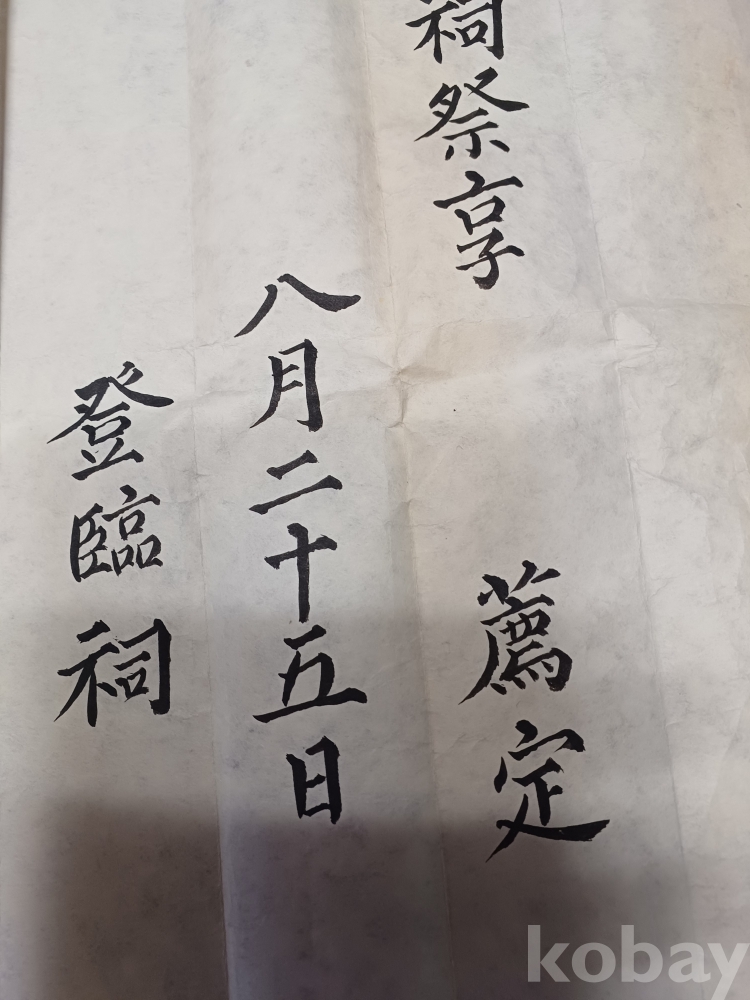 祠祭享
薦定
八月二十五日
登臨祠
kobay